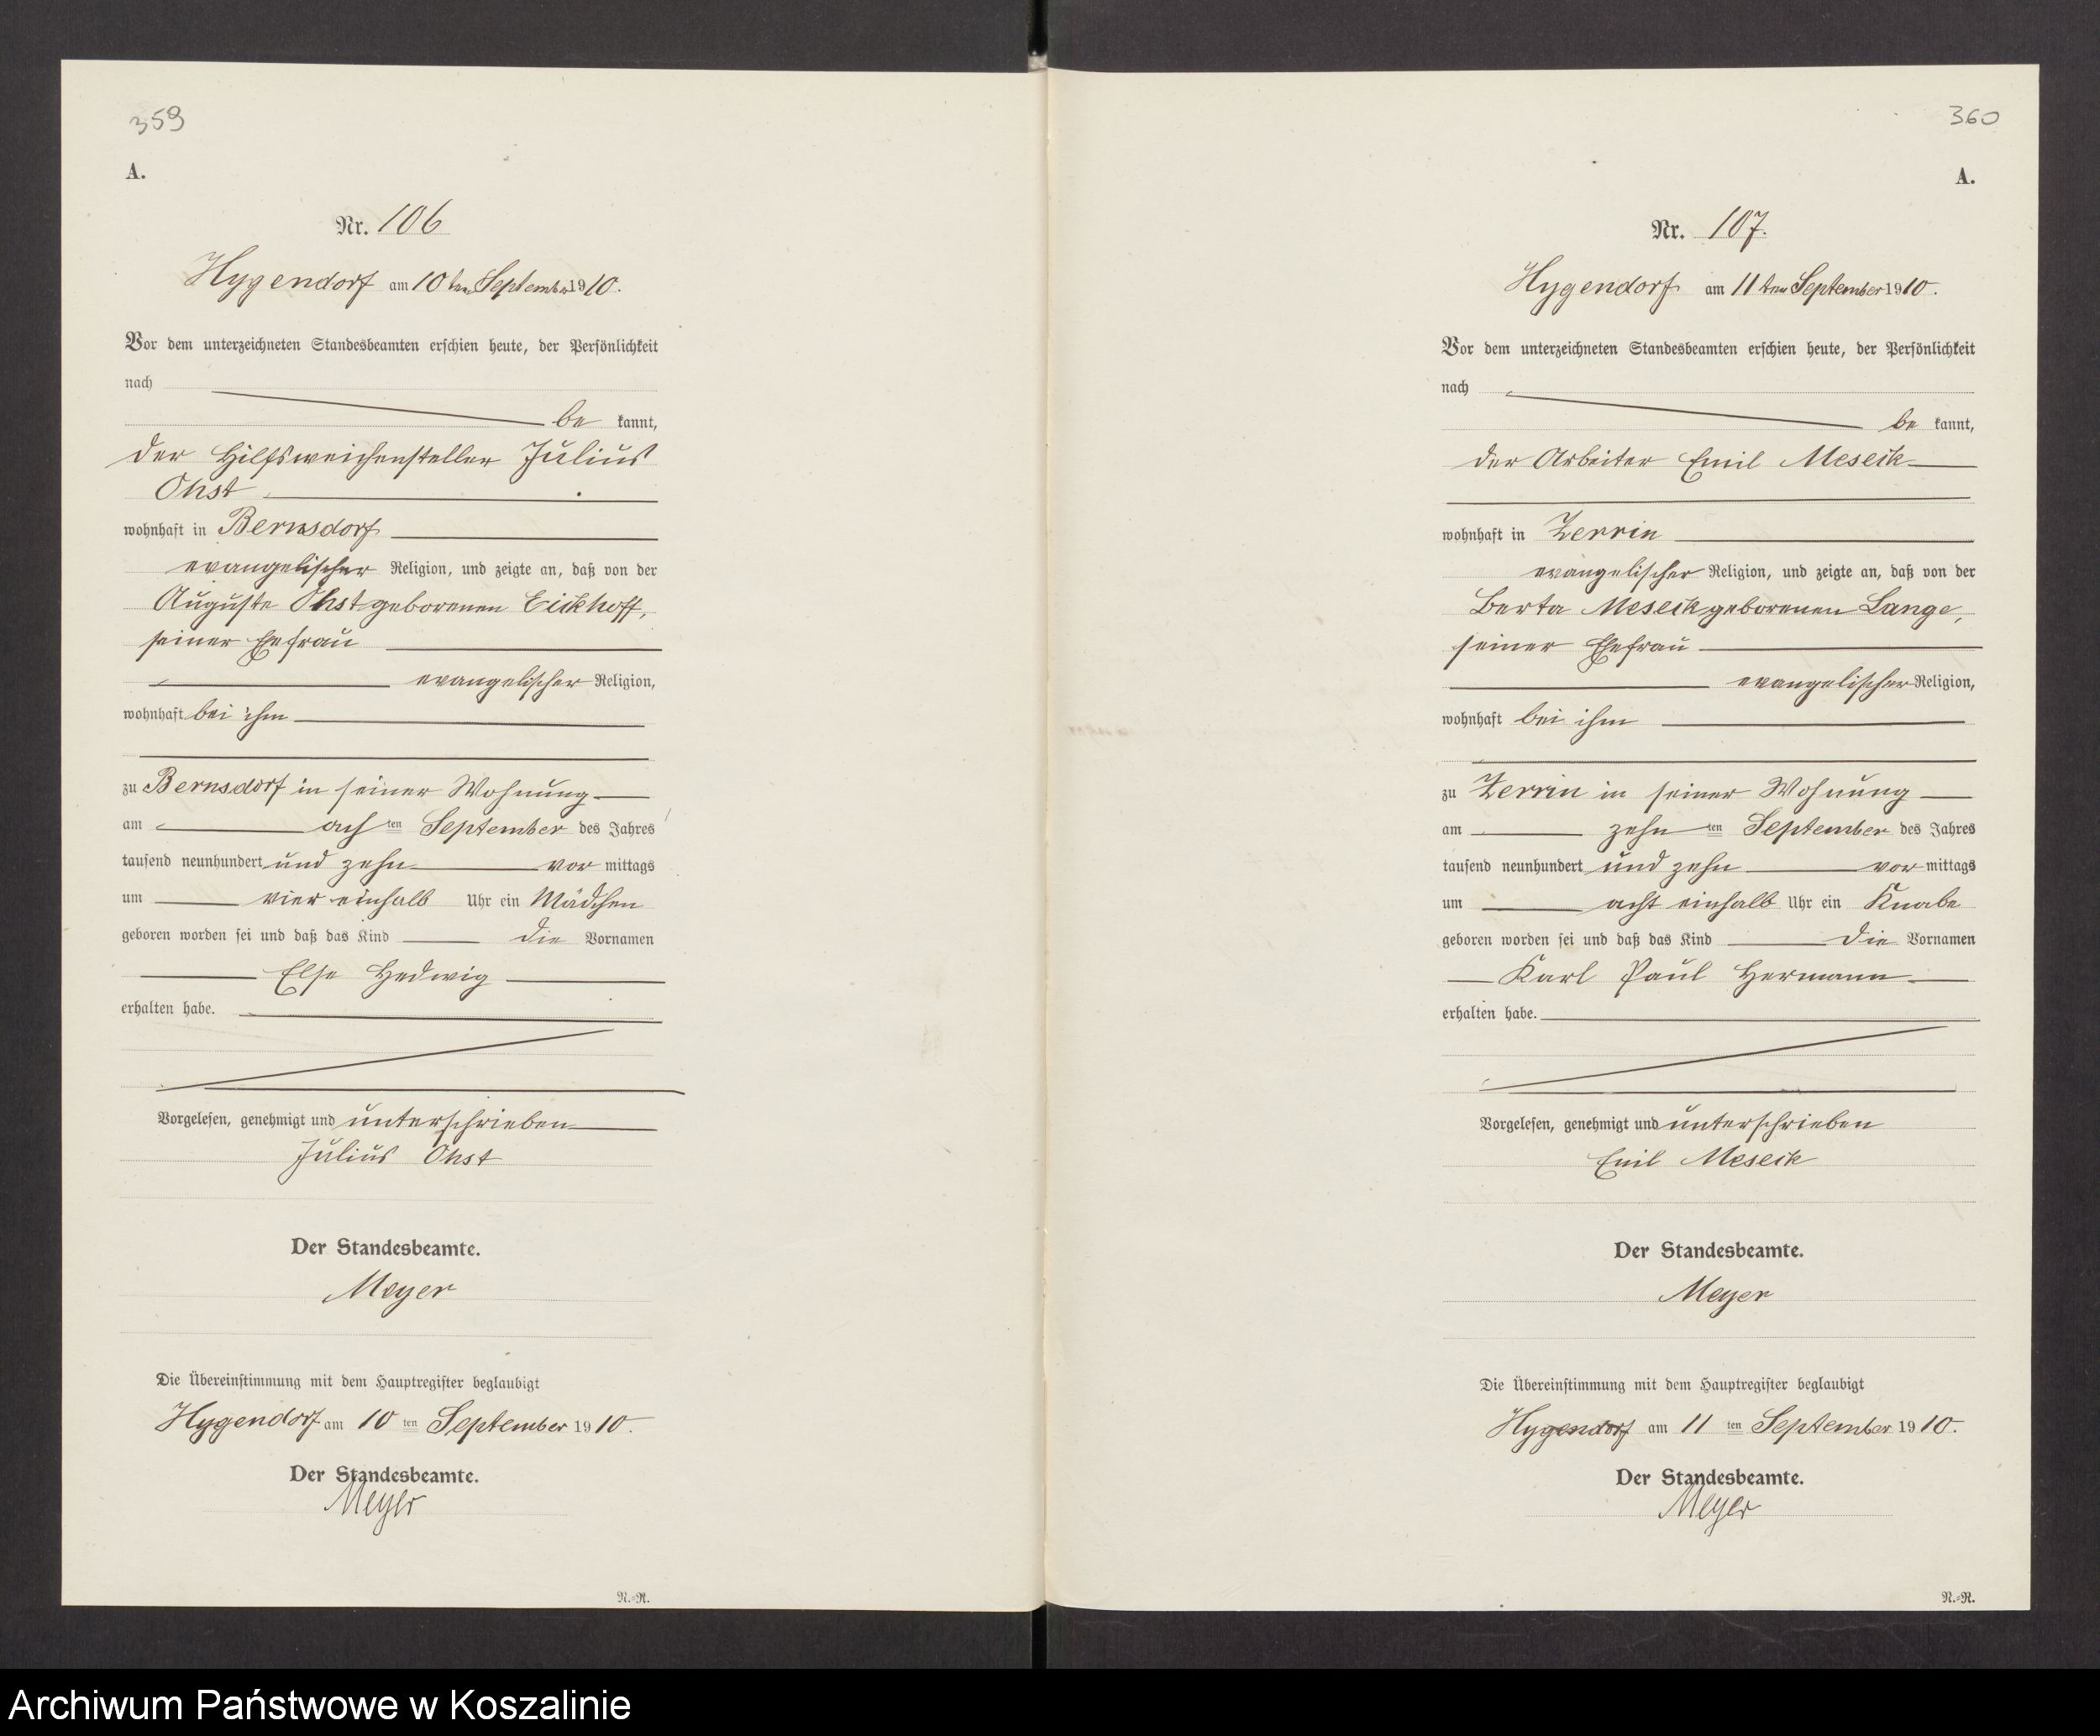 359
A.
Nr. 106
Hygendorf am 10ten September 1910.
Vor dem unterzeichneten Standesbeamten erschien heute, der Persönlichkeit
nach
be kannt,
der Hilfsweichensteller Julius
Ohst
wohnhaft in Bernsdorf
evangelischer Religion, und zeigte an, daß von der
Auguste Ohst geborenen Eickhoff,
seiner Ehefrau
evangelischer Religion,
wohnhaft bei ihm
zu Bernsdorf in seiner Wohnung
am ach ten September des Jahres
tausend neunhundert und zehn vor mittags
um vier einhalb Uhr ein Mädchen
geboren worden sei und daß das Kind die Vornamen
Else Hedwig
erhalten habe.
Vorgelesen, genehmigt und unterschrieben
Julius Ohst
Der Standesbeamte.
Meyer
Die Übereinstimmung mit dem Hauptregister beglaubigt
Hygendorf am 10 ten September 1910.
Der Standesbeamte.
Meyer
N.-R.
360
A.
Nr. 107.
Hygendorf am 11ten September 1910.
Vor dem unterzeichneten Standesbeamten erschien heute, der Persönlichkeit
nach
be kannt,
der Arbeiter Emil Meseck
wohnhaft in Zerrin
evangelischer Religion, und zeigte an, daß von der
Berta Meseck geborenen Lange,
seiner Ehefrau
evangelischer Religion,
wohnhaft bei ihm
zu Zerrin in seiner Wohnung
am zehn ten September des Jahres
tausend neunhundert und zehn vor mittags
um acht einhalb Uhr ein Knabe
geboren worden sei und daß das Kind die Vornamen
Karl Paul Hermann
erhalten habe.
Vorgelesen, genehmigt und unterschrieben
Emil Meseck
Der Standesbeamte.
Meyer
Die Übereinstimmung mit dem Hauptregister beglaubigt
Hygendorf am 11 ten September 1910.
Der Standesbeamte.
Meyer
N.-R.
Archiwum Państwowe w Koszalinie